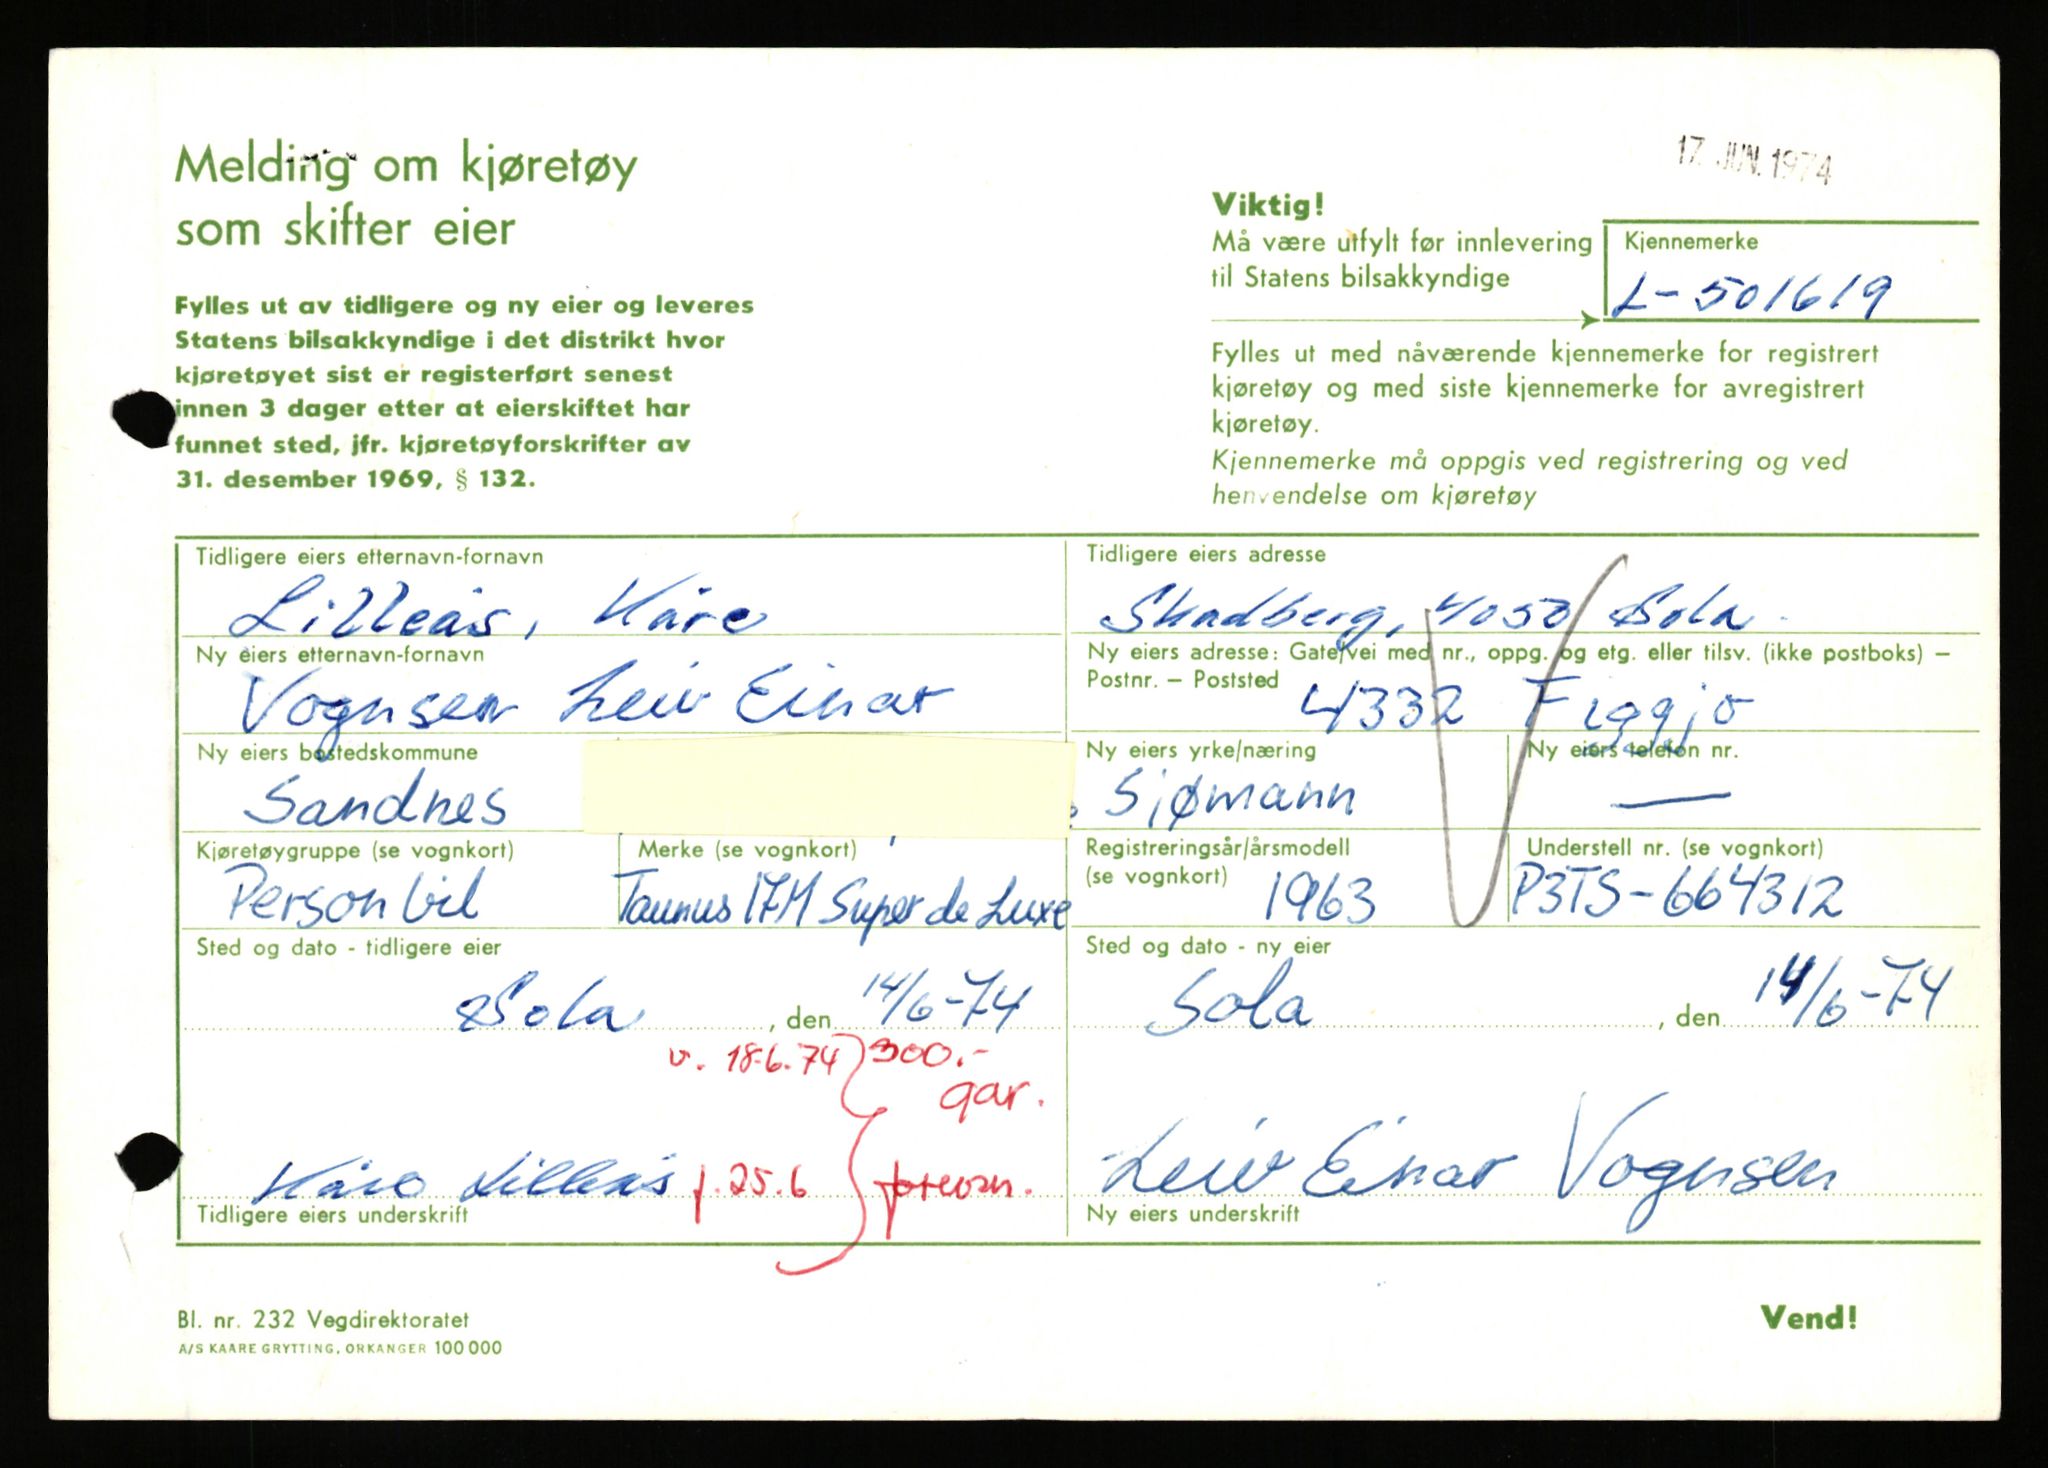 17. JUN. 1974
Melding om kjøretøy
som skifter eier
Fylles ut av tidligere og ny eier og leveres
Statens bilsakkyndige i det distrikt hvor
kjøretøyet sist er registerført senest
innen 3 dager etter at eierskiftet har
funnet sted, jfr. kjøretøyforskrifter av
31. desember 1969, § 132.
Viktig!
Må være utfylt før innlevering
til Statens bilsakkyndige
Kjennemerke
L-501619
Fylles ut med nåværende kjennemerke for registrert
kjøretøy og med siste kjennemerke for avregistrert
kjøretøy.
Kjennemerke må oppgis ved registrering og ved
henvendelse om kjøretøy
Tidligere eiers etternavn-fornavn
Lilleås, Kåre
Tidligere eiers adresse
Skadberg, 4050 Sola.
Ny eiers etternavn-fornavn
Vognsen Leiv Einar
Ny eiers adresse: Gate/vei med nr., oppg. og etg. eller tilsv. (ikke postboks) –
Postnr. – Poststed
4332 Figgjo
Ny eiers bostedskommune
Sandnes
Ny eiers yrke/næring
Sjømann
Ny eiers telefon nr.
—
Kjøretøygruppe (se vognkort)
Personbil
Merke (se vognkort)
Taunus 17M Super de Luxe
Registreringsår/årsmodell
(se vognkort)
1963
Understell nr. (se vognkort)
P3TS-664312
Sted og dato - tidligere eier
Sola, den 14/6-74
Sted og dato - ny eier
Sola, den 14/6-74
v. 18.6.74 300.-
gar.
Kåre Lilleås
f. 25.6
Tidligere eiers underskrift
Leiv Einar Vognsen
Ny eiers underskrift
Bl. nr. 232 Vegdirektoratet
A/S KAARE GRYTTING, ORKANGER 100 000
Vend!